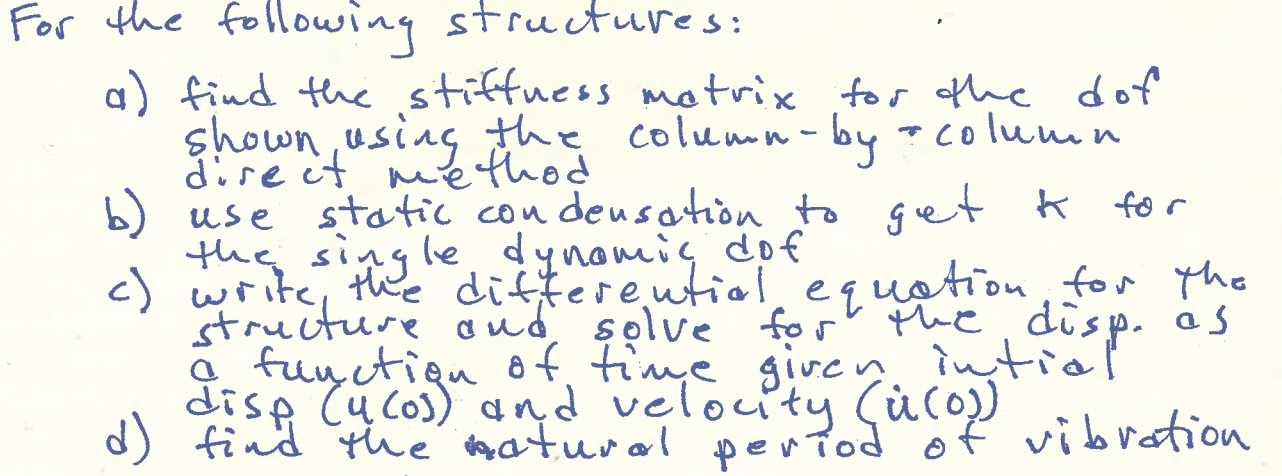 For the following structures:
a) find the stiffness matrix for the dof
shown using the column-by-column
direct method
b) use static condensation to get k for
the single dynamic dof
c) write the differential equation for the
structure and solve for the disp. as
a function of time given intial
disp (u(0)) and velocity (u̇(0))
d) find the natural period of vibration